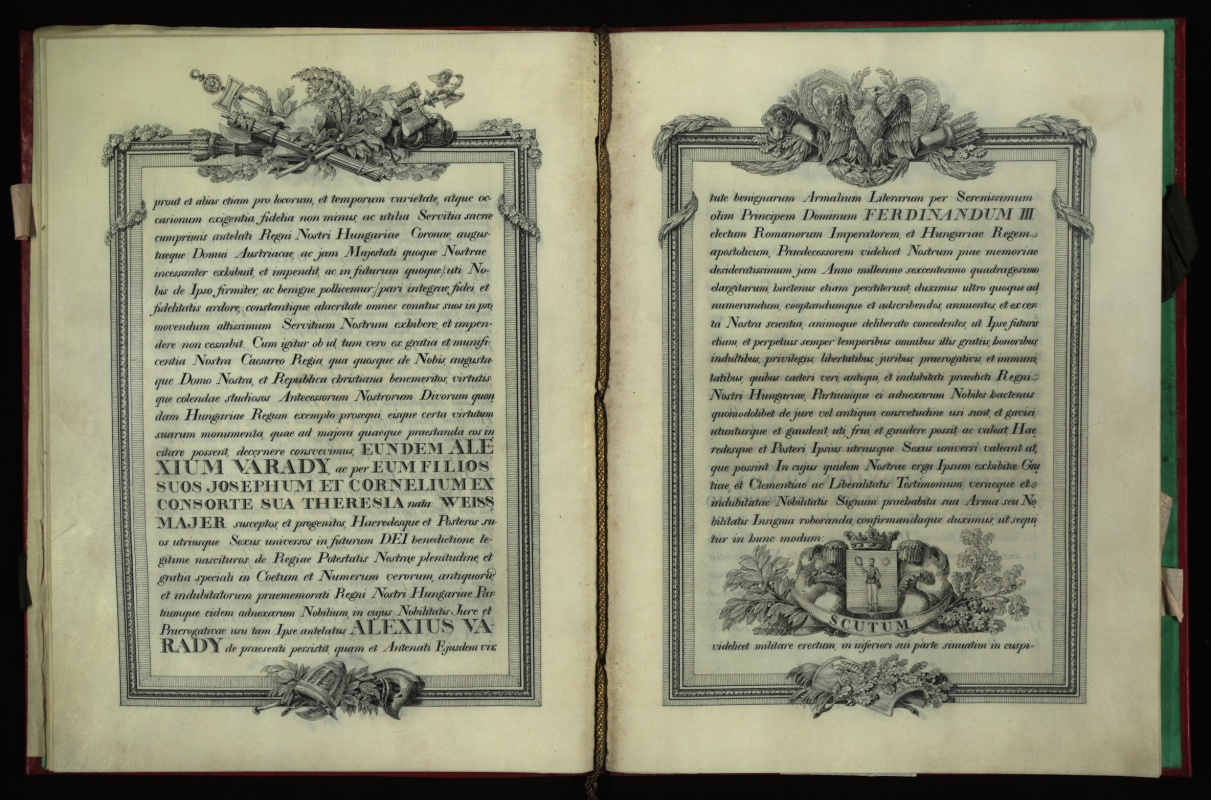 prout et alias etiam pro locorum, et temporum varietate, atque oc-
casionum exigentia, fidelia non minus, ac utilia Servitia sacrae
cumprimis antelati Regni Nostri Hungariae Coronae, augus-
taeque Domui Austriacae, ac jam Majestati quoque Nostrae
incessanter exhibuit, et impendit, ac in futurum quoque /: uti No-
bis de Ipso firmiter, ac benigne pollicemur :/ pari integrae fidei, et
fidelitatis ardore, constantique alacritate omnes conatus suos in pro
movendum altissimum Servitium Nostrum exhibere, et impen-
dere non cessabit. Cum igitur ob id, tum vero ex gratia et munifi
centia Nostra Caesareo Regia, qua quosque de Nobis, augusta-
que Domo Nostra, et Republica christiana benemeritos, virtutis-
que colendae studiosos Antecessorum Nostrorum Divorum quon
dam Hungariae Regum exemplo prosequi, eisque certa virtutum
suarum monumenta, quae ad majora quaeque praestanda eos in
citare possent, decernere consvevimus, EUNDEM ALE
XIUM VARADY, ac per EUM FILIOS
SUOS JOSEPHUM ET CORNELIUM EX
CONSORTE SUA THERESIA nata WEISS
MAJER susceptos, et progenitos, Haeredesque et Posteros su-
os utriusque Sexus universos in futurum DEI benedictione le-
gitime nascituros de Regiae Potestatis Nostrae plenitudine, et
gratia speciali in Coetum et Numerum verorum, antiquorum,
et indubitatorum praememorati Regni Nostri Hungariae Par-
tiumque eidem adnexarum Nobilium, in cujus Nobilitatis Jure et
Praerogativae usu tam Ipse antelatus ALEXIUS VA-
RADY de praesenti persistit, quam et Antenati Ejusdem vir
tute benignarum Armalium Literarum per Serenissimum
olim Principem Dominum FERDINANDUM III
electum Romanorum Imperatorem, et Hungariae Regem
apostolicum, Praedecessorem videlicet Nostrum piae memoriae
desideratissimum jam Anno millesimo sexcentesimo quadragesimo
elargitarum, hactenus etiam perstiterunt, duximus ultro quoque ad
numerandum, cooptandumque et adscribendos, annuentes, et ex cer
ta Nostra scientia, animoque deliberato concedentes, ut Ipse futuris
etiam, et perpetuis semper temporibus omnibus illis gratiis, honoribus,
indultibus, privilegiis, libertatibus, juribus, praerogativis, et immuni
tatibus, quibus caeteri veri, antiqui, et indubitati praedicti Regni
Nostri Hungariae, Partiumque ei adnexarum Nobiles hactenus
quomodolibet de jure vel antiqua consvetudine usi sunt, et gavisi
utunturque et gaudent, uti frui, et gaudere possit, ac valeat, Hae
redesque et Posteri Ipsius utriusque Sexus universi valeant at,
que possint. In cujus quidem Nostrae erga Ipsum exhibitae Gra
tiae, et Clementiae ac Liberalitatis Testimonium, veraeque et
indubitatae Nobilitatis Signum praehabita sua Arma seu No
bilitatis Insignia roboranda, confirmandaque duximus, ut sequi
tur in hunc modum:
SCUTUM
videlicet militare erectum, in inferiori sui parte sinuatim in cuspi-